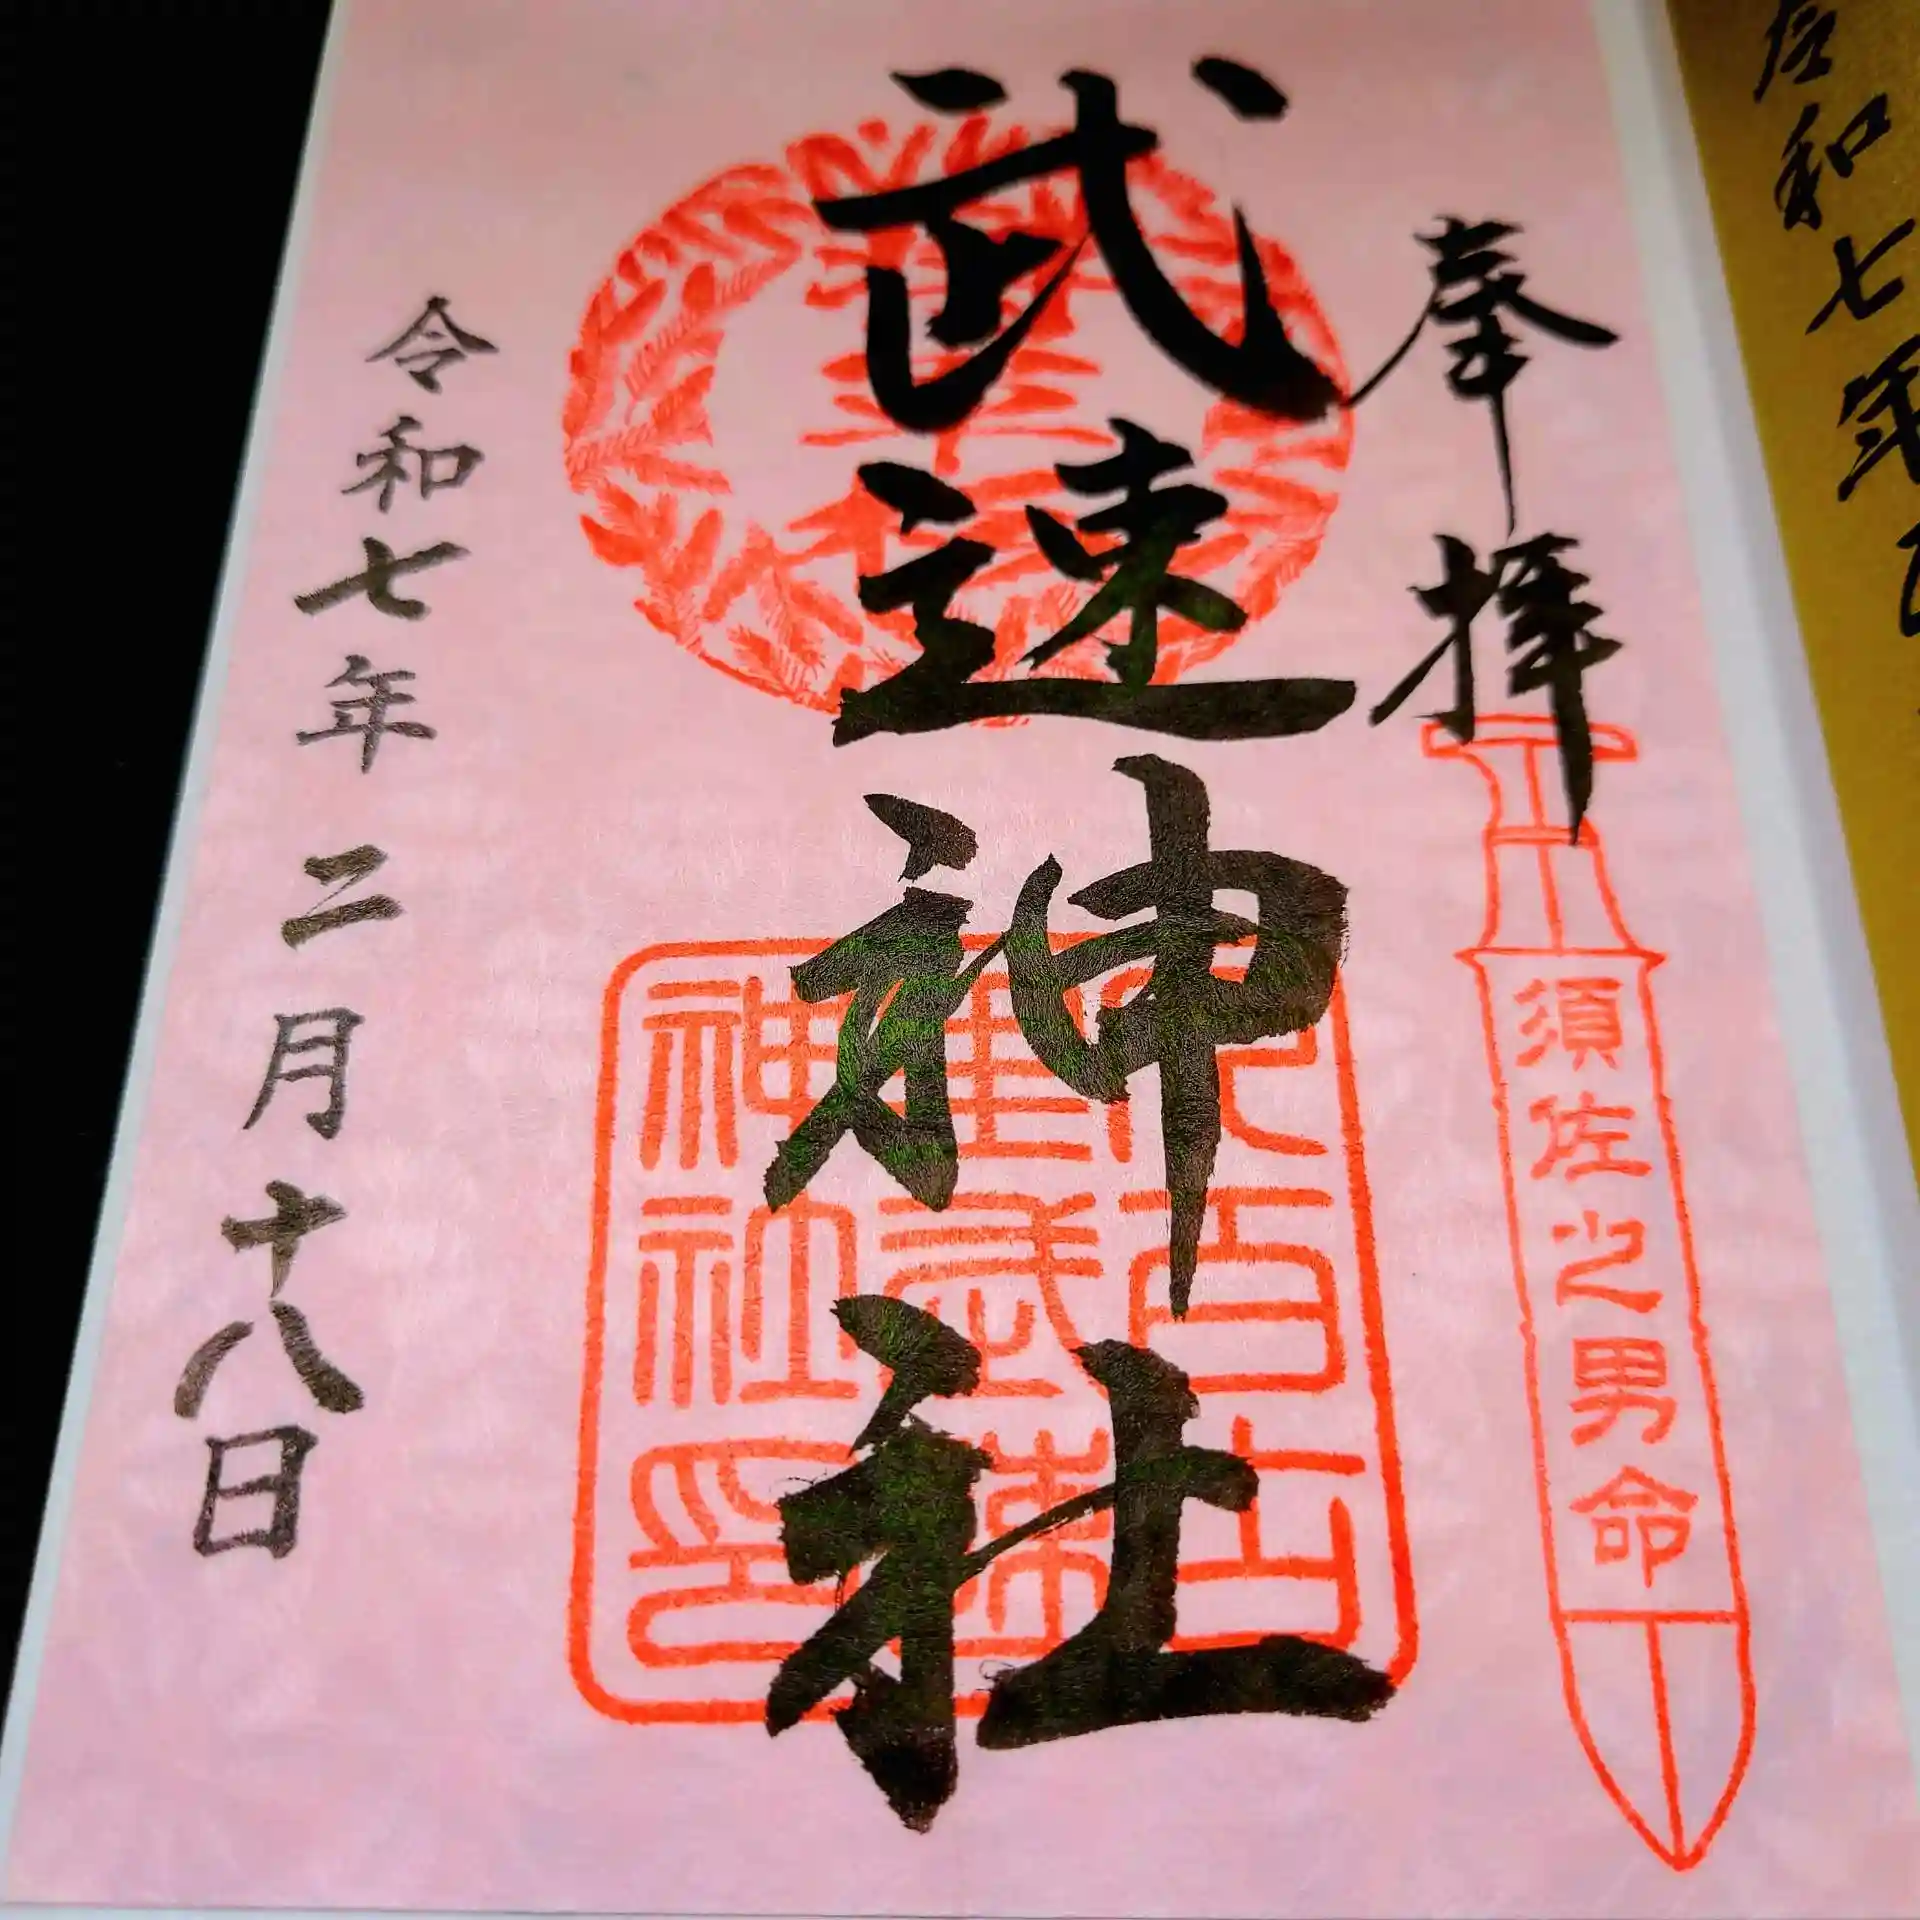 令和七年
奉拝
須佐之男命
武速神社
神社印
令和七年二月十八日